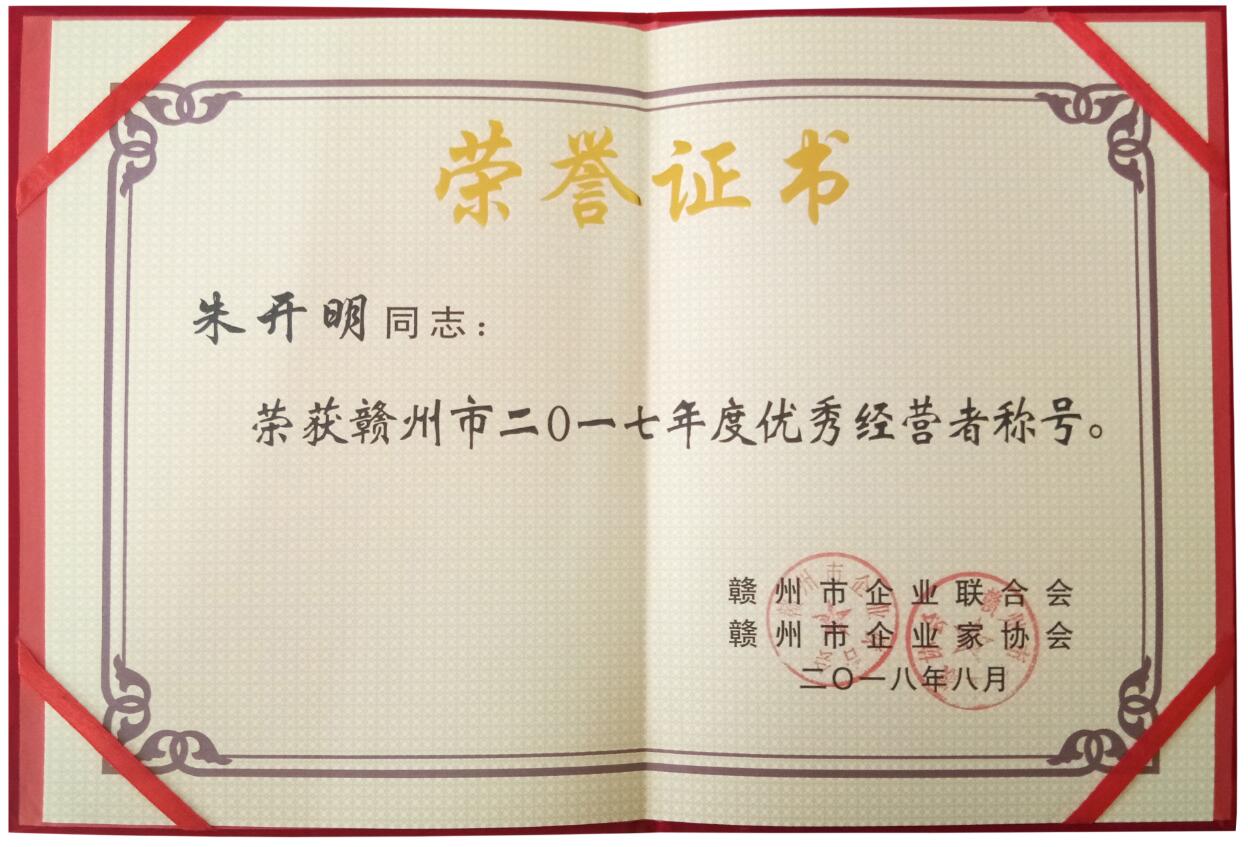 荣誉证书
朱开明同志：
荣获赣州市二〇一七年度优秀经营者称号。
赣州市企业联合会
赣州市企业家协会
二〇一八年八月